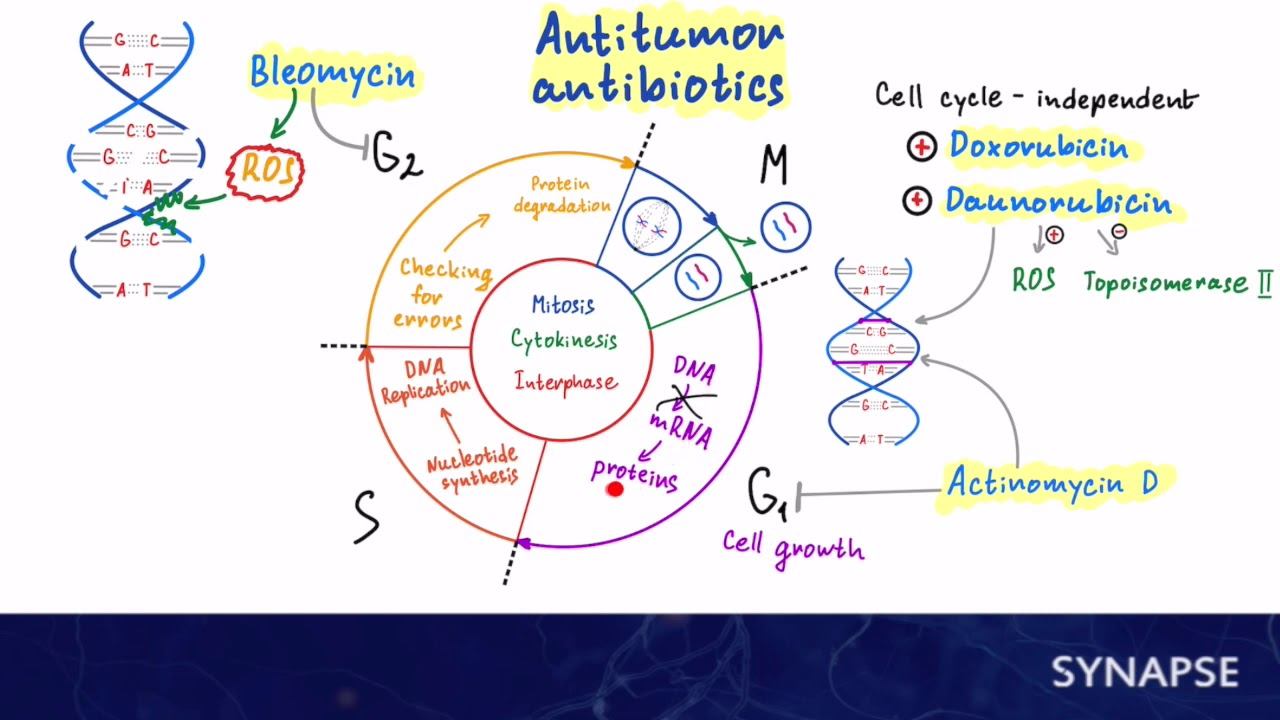 Antitumor
antibiotics
G C
A T
C G
G C
T A
G C
A T
Bleomycin
ROS
G2
M
Protein
degradation
Checking
for
errors
Mitosis
Cytokinesis
Interphase
DNA
Replication
Nucleotide
synthesis
S
DNA
mRNA
proteins
G1
Cell growth
Cell cycle - independent
+ Doxorubicin
+ Daunorubicin
+
-
ROS
Topoisomerase II
G C
A T
C G
G C
T A
G C
A T
Actinomycin D
SYNAPSE